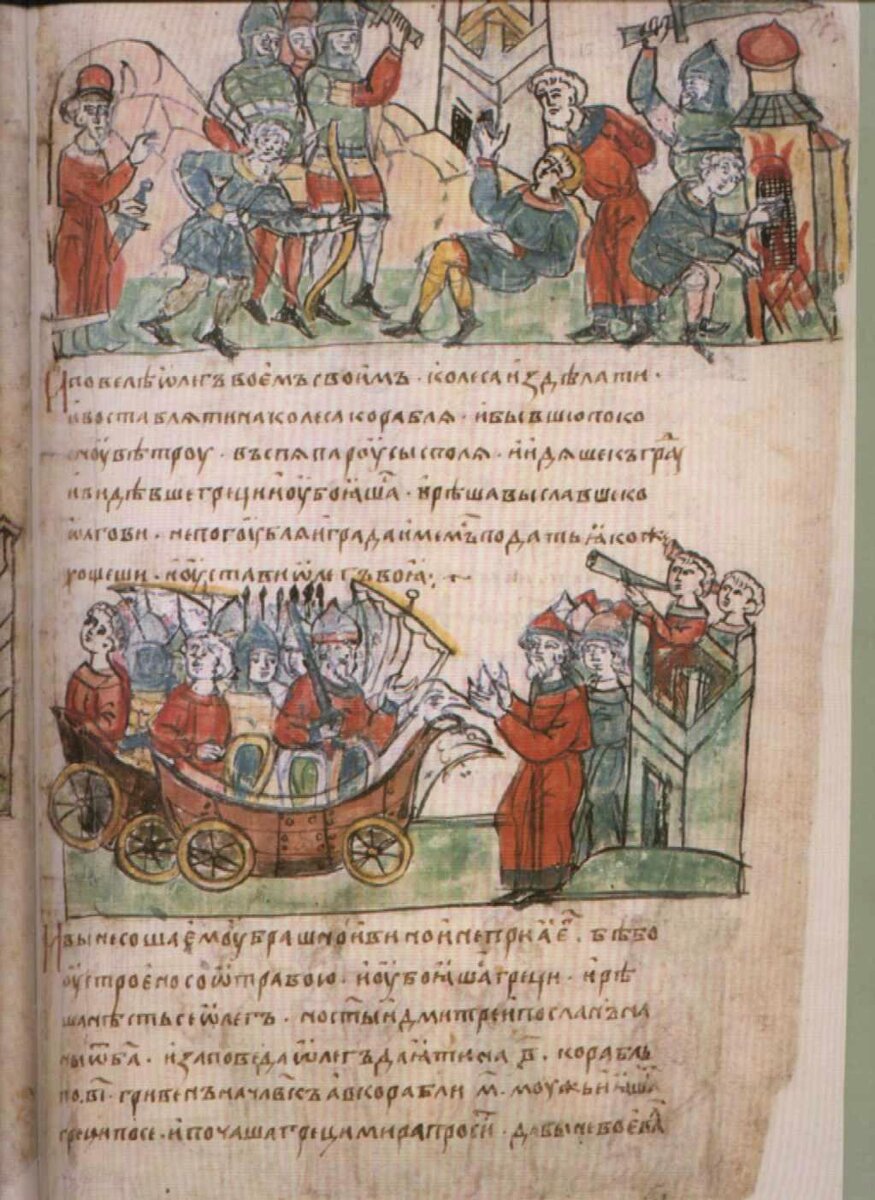 И повелѣ ѡлегъ воємъ своимъ · колеса издѣлати ·
и воставляти на колеса корабля · и бывшю поко
сноу вѣтроу · въспя пароусы с поля · и идяше къ граⷣу
и видѣвше греци и оубоꙗшаⷭ · и рѣша выславше ко
ѡлгови · не погоублѧи града имемъ сѧ по дань ꙗкоже
хощеши · и оустави ѡлегъ воꙗ ·:·
И вынесоша ємоу брашно и вино и не приꙗ єгⷪ · бѣ бо
оустроєно со ѿравою · и оубоꙗшаⷭ греци · и рѣ
ша нѣсть се ѡлегъ · но ст҃ыи дмитреи посланъ на
ны ѿ ба҃ · и заповеда ѡлегъ даꙗти на в҃ · корабль
по · в҃і · гривенъ на чл҃вкъ а в корабли м҃ · моужь и ꙗшаⷭ
греци по се · и почаша греци мира проситⷤи · дабы не воєвⷶ